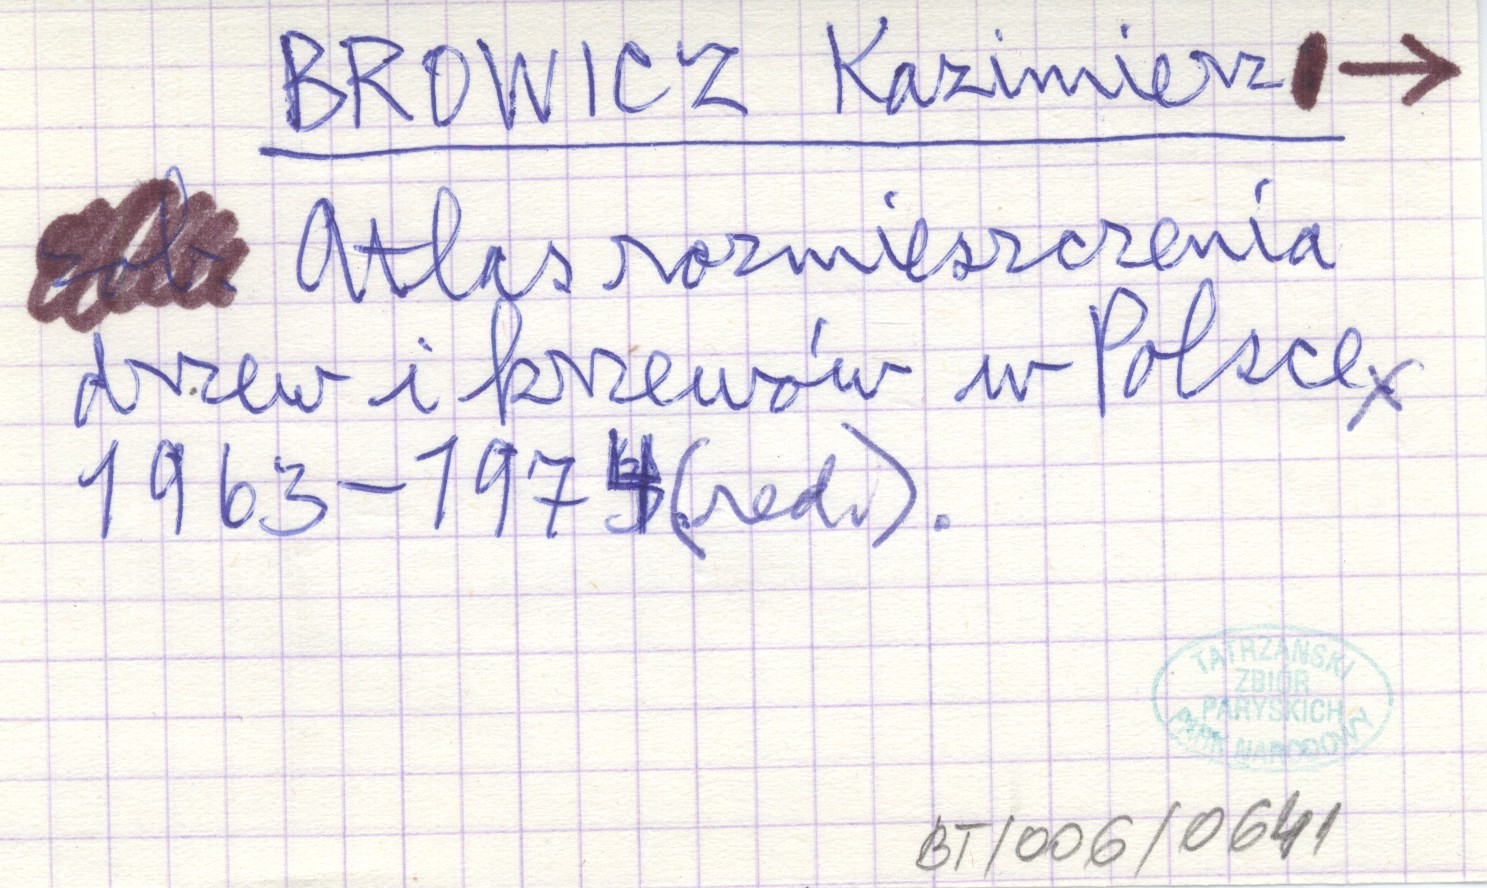 BROWICZ Kazimierz →
zob. Atlas rozmieszczenia
drzew i krzewów w Polsce x
1963-1974 (red.).
TATRZAŃSKI
ZBIÓR
PARYSKICH
PARK NARODOWY
BT/006/0641